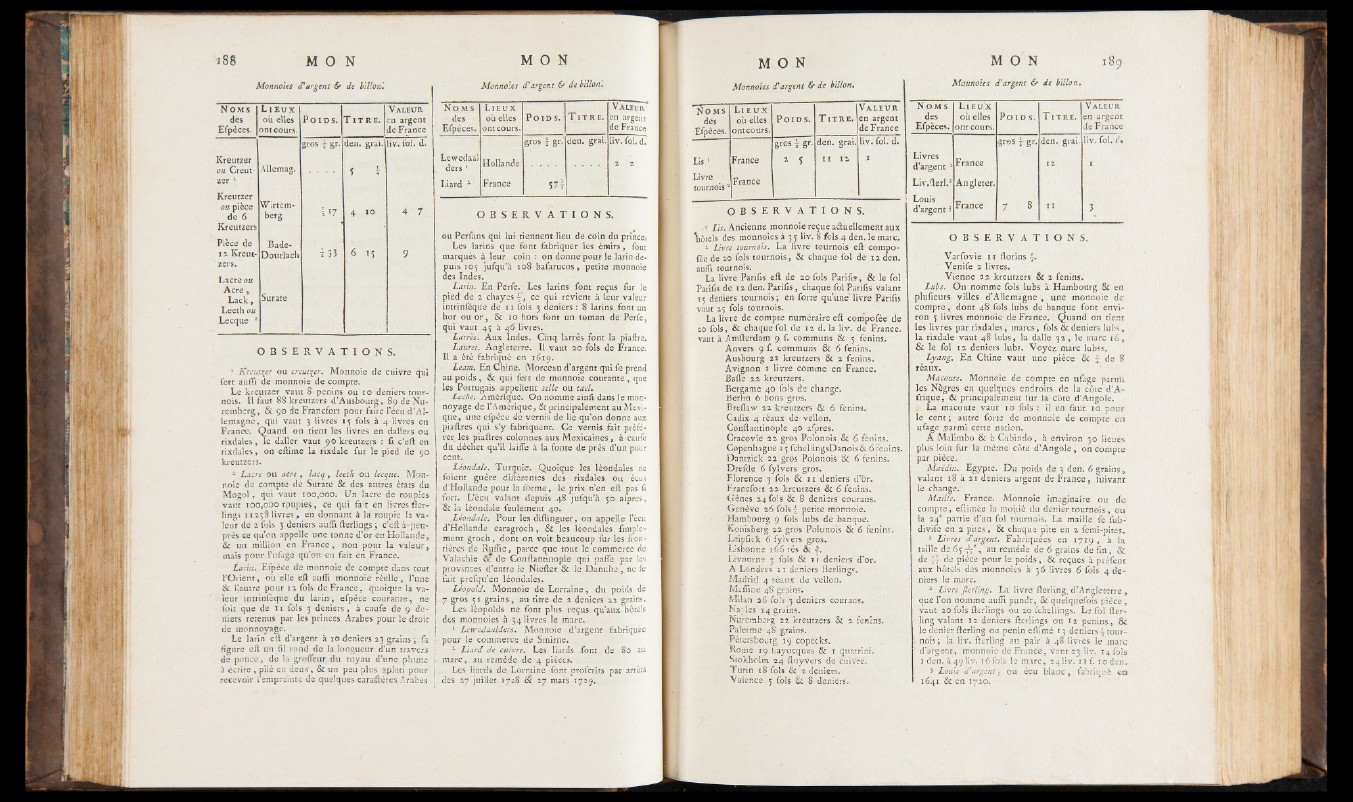 188 MON
Monnoies d'argent & de billon.
NOMS des Espèces. LIEUX où elles ont cours. POIDS. TITRE. VALEUR en argent de France
gros ½ gr. den. grai. liv. sol. d.
Kreutzer
ou Creut-
zer ¹ Allemag. . . . . 5 ¼
Kreutzer
ou pièce
de 6
Kreutzers Wirtem-
berg ½ 17 4 10 4 7
Pièce de
12 Kreut-
zers. Bade-
Dourlach ½ 33 6 15 9
Lacre ou
Acre,
Lack,
Leeth ou
Lecque ² Surate
OBSERVATIONS.
¹ Kreutzer ou creutzer. Monnoie de cuivre qui
sert aussi de monnoie de compte.
Le kreutzer vaut 8 penins ou 10 deniers tour-
nois. Il faut 88 kreutzers d'Ausbourg, 89 de Nu-
remberg, & 90 de Francfort pour faire l'écu d'Al-
lemagne, qui vaut 3 livres 15 sols à 4 livres en
France. Quand on tient les livres en dallers ou
rixdales, le daller vaut 90 kreutzers : si c'est en
rixdales, on estime la rixdale sur le pied de 90
kreutzers.
² Lacre ou acre, lacq, leeth ou lecque. Mon-
noie de compte de Surate & des autres états du
Mogol, qui vaut 100,000. Un lacre de roupies
vaut 100,000 roupies, ce qui fait en livres ster-
lings 11258 livres, en donnant à la roupie la va-
leur de 2 sols 3 deniers aussi sterlings ; c'est à-peu-
près ce qu'on appelle une tonne d'or en Hollande,
& un million en France, non pour la valeur,
mais pour l'usage qu'on en fait en France.
Larin. Espèce de monnoie de compte dans tout
l'Orient, où elle est aussi monnoie réelle, l'une
& l'autre pour 12 sols de France, quoique la va-
leur intrinsèque du larin, espèce courante, ne
soit que de 11 sols 3 deniers, à cause de 9 de-
niers retenus par les princes Arabes pour le droit
de monnoyage.
Le larin est d'argent à 10 deniers 23 grains ; sa
figure est un fil rond de la longueur d'un travers
de pouce, de la grosseur du tuyau d'une plume
à écrire, plié en deux, & un peu plus aplati pour
recevoir l'empreinte de quelques caractères Arabes
MON
Monnoies d'argent & de billon.
NOMS des Espèces. LIEUX où elles ont cours. POIDS. TITRE. VALEUR en argent de France
gros ½ gr. den. grai. liv. sol. d.
Lewedaal
ders ¹ Hollande . . . . . . . . 2 2
Liard ² France 57
OBSERVATIONS.
ou Persans qui lui tiennent lieu de coin du prince.
Les larins que font fabriquer les émirs, sont
marqués à leur coin : on donne pour le larin de-
puis 105 jusqu'à 108 basarucos, petite monnoie
des Indes.
Larin. En Perse. Les larins sont reçus sur le
pied de 2 chayes, ce qui revient à leur valeur
intrinsèque de 11 sols 3 deniers : 8 larins font un
hor ou or, & 10 hors font un toman de Perse,
qui vaut 45 à 46 livres.
Larrés. Aux Indes. Cinq larrés font la piastre.
Lauret. Angleterre. Il vaut 20 sols de France.
Il a été fabriqué en 1619.
Leam. En Chine. Morceau d'argent qui se prend
au poids, & qui sert de monnoie courante, que
les Portugais appellent telle ou tael.
Leche. Amérique. On nomme ainsi dans le mon-
noyage de l'Amérique, & principalement au Mexi-
que, une espèce de vernis de lie qu'on donne aux
piastres qui s'y fabriquent. Ce vernis fait préfé-
rer les piastres colonnes aux Mexicaines, à cause
du déchet qu'il laisse à la fonte de près d'un pour
cent.
Léondale. Turquie. Quoique les léondales ne
soient guère différentes des rixdales ou écus
d'Hollande pour la forme, le prix n'en est pas si
fort. L'écu valant depuis 48 jusqu'à 50 aspres,
& la léondale seulement 40.
Léondale. Pour les distinguer, on appelle l'écu
d'Hollande caragroch, & les léondales simple-
ment groch, dont on voit beaucoup sur les fron-
tières de Russie, parce que tout le commerce de
Valachie & de Constantinople qui passe par les
provinces d'entre le Niester & le Danube, ne se
fait presqu'en léondales.
Léopold. Monnoie de Lorraine, du poids de
7 gros 51 grains, au titre de 2 deniers 22 grains.
Les léopolds ne sont plus reçus qu'aux hôtels
des monnoies à 34 livres le marc.
¹ Lewedaalders. Monnoie d'argent fabriquée
pour le commerce de Smirne.
² Liard de cuivre. Les liards sont de 80 au
marc, au remède de 4 pièces.
Les liards de Lorraine sont proscrits par arrêts
des 27 juillet 1728 & 27 mars 1729.
MON
Monnoies d'argent & de billon.
NOMS des Espèces. LIEUX où elles ont cours. POIDS. TITRE. VALEUR en argent de France
gros ½ gr. den. grai. liv. sol. d.
Lis ¹ France 2 5 11 12 1
Livre
tournois ² France
OBSERVATIONS.
¹ Lis. Ancienne monnoie reçue actuellement aux
hôtels des monnoies à 35 liv. 8 sols 4 den. le marc.
² Livre tournois. La livre tournois est compo-
sée de 20 sols tournois, & chaque sol de 12 den.
aussi tournois.
La livre Parisis est de 20 sols Parisis, & le sol
Parisis de 12 den. Parisis, chaque sol Parisis valant
15 deniers tournois ; en sorte qu'une livre Parisis
vaut 25 sols tournois.
La livre de compte numéraire est composée de
20 sols, & chaque sol de 12 d. la liv. de France.
vaut à Amsterdam 9 s. communs & 5 fenins.
Anvers 9 s. communs & 6 fenins.
Ausbourg 22 kreutzers & 2 fenins.
Avignon 1 livre comme en France.
Basle 22 kreutzers.
Bergame 40 sols de change.
Berlin 6 bons gros.
Breslaw 22 kreutzers & 6 fenins.
Cadix 4 réaux de vellon.
Constantinople 40 aspres.
Cracovie 22 gros Polonois & 6 fenins.
Copenhague 15 schellings Danois & 6 fenins.
Dantzick 22 gros Polonois & 6 fenins.
Dresde 6 sylvers gros.
Florence 3 sols & 11 deniers d'or.
Francfort 22 kreutzers & 6 fenins.
Gènes 24 sols & 8 deniers courans.
Genève 26 sols petite monnoie.
Hambourg 9 sols lubs de banque.
Konisberg 22 gros Polonois & 6 fenins.
Leipsick 6 sylvers gros.
Lisbonne 166 rés &
Livourne 3 sols & 11 deniers d'or.
A Londres 11 deniers sterlings.
Madrid 4 réaux de veilon.
Messine 48 grains.
Milan 26 sols 3 deniers courans.
Naples 14 grains.
Nuremberg 22 kreutzers & 2 fenins.
Palerme 48 grains.
Pétersbourg 19 copecks.
Rome 19 bayocques & 1 quatrini.
Stokholm 24 stuyvers de cuivre.
Turin 18 sols & 2 deniers.
Valence 5 sols & 8 deniers.
MON 189
Monnoies d'argent & de billon.
NOMS des Espèces. LIEUX où elles ont cours. POIDS. TITRE. VALEUR en argent de France
gros ½ gr. den. grai. liv. sol. d.
Livres
d'argent ¹ France 12 1
Liv. sterl. ² Angleter.
Louis
d'argent ³ France 7 8 11 3
OBSERVATIONS.
Varsovie 11 florins
Venise 2 livres.
Vienne 22 kreutzers & 2 fenins.
Lubs. On nomme sols lubs à Hambourg & en
plusieurs villes d'Allemagne, une monnoie de
compte, dont 48 sols lubs de banque font envi-
ron 5 livres monnoie de France. Quand on tient
les livres par rixdales, marcs, sols & deniers lubs,
la rixdale vaut 48 lubs, la dalle 32, le marc 16,
& le sol 12 deniers lubs. Voyez marc lubss.
Lyang. En Chine vaut une pièce & de 8
réaux.
Macoute. Monnoie de compte en usage parmi
les Nègres en quelques endroits de la côte d'A-
frique, & principalement sur la côte d'Angole.
La macoute vaut 10 sols : il en faut 10 pour
le cent ; autre sorte de monnoie de compte en
usage parmi cette nation.
A Malimbo & à Cabindo, à environ 30 lieues
plus loin sur la même côte d'Angole, on compte
par pièce.
Maidin. Egypte. Du poids de 3 den. 6 grains,
valant 18 à 21 deniers argent de France, suivant
le change.
Maille. France. Monnoie imaginaire ou de
compte, estimée la moitié du denier tournois, ou
la 24ᵉ partie d'un sol tournois. La maille se sub-
divise en 2 pites, & chaque pite en 2 semi-pites.
¹ Livres d'argent. Fabriquées en 1719, à la
taille de 65, au remède de 6 grains de fin, &
de pièce pour le poids, & reçues à présent
aux hôtels des monnoies à 36 livres 6 sols 4 de-
niers le marc.
² Livre sterling. La livre sterling d'Angleterre,
que l'on nomme aussi pundt, & quelquefois pièce,
vaut 20 sols sterlings ou 20 schellings. Le sol ster-
ling valant 12 deniers sterlings ou 12 penins, &
le denier sterling ou penin estimé 13 deniers ½ tour-
nois ; la liv. sterling au pair à 48 livres le marc
d'argent, monnoie de France, vaut 23 liv. 14 sols
2 den. à 49 liv. 16 sols le marc, 24 liv. 11 s. 10 den.
³ Louis d'argent, ou écu blanc, fabriqué en
1641 & en 1720.